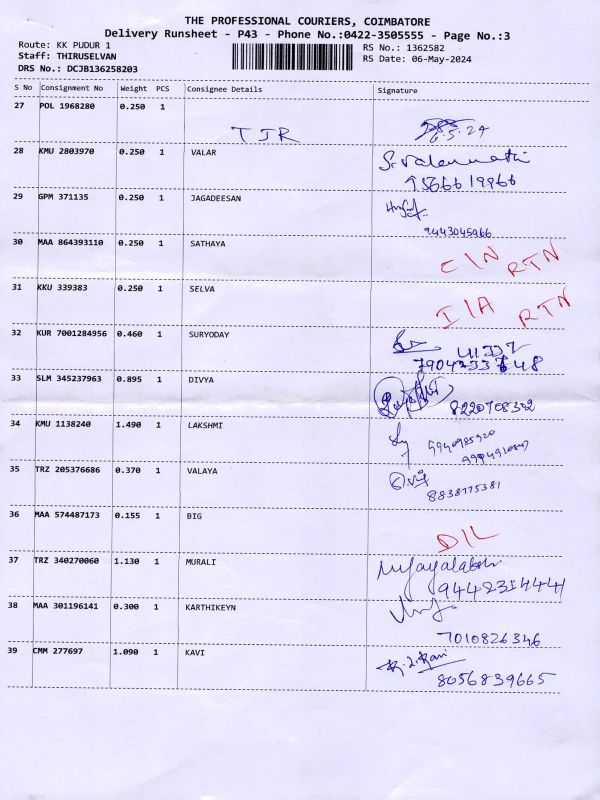 THE PROFESSIONAL COURIERS, COIMBATORE
Delivery Runsheet - P43 - Phone No.:0422-3505555 - Page No.:3
Route: KK PUDUR 1
Staff: THIRUSELVAN
DRS No.: DCJB136258203
RS No.: 1362582
RS Date: 06-May-2024
S No Consignment No Weight PCS Consignee Details Signature
27 POL 1968280 0.250 1 TJR 6.5.24
28 KMU 2803970 0.250 1 VALAR
29 GPM 371135 0.250 1 JAGADEESAN 9443045966
30 MAA 864393110 0.250 1 SATHAYA C/N RTN
31 KKU 339383 0.250 1 SELVA I/A RTN
32 KUR 7001284956 0.460 1 SURYODAY
33 SLM 345237963 0.895 1 DIVYA 8220708302
34 KMU 1138240 1.490 1 LAKSHMI
35 TRZ 205376686 0.370 1 VALAYA 8838775381
36 MAA 574487173 0.155 1 BIG D/L
37 TRZ 340270060 1.130 1 MURALI
38 MAA 301196141 0.300 1 KARTHIKEYN 7010826346
39 CMM 277697 1.090 1 KAVI 8056839665